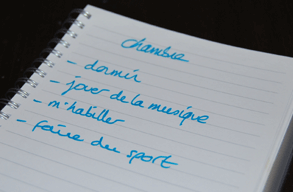 chambre
- dormir
- jouer de la musique
- m'habiller
- faire du sport